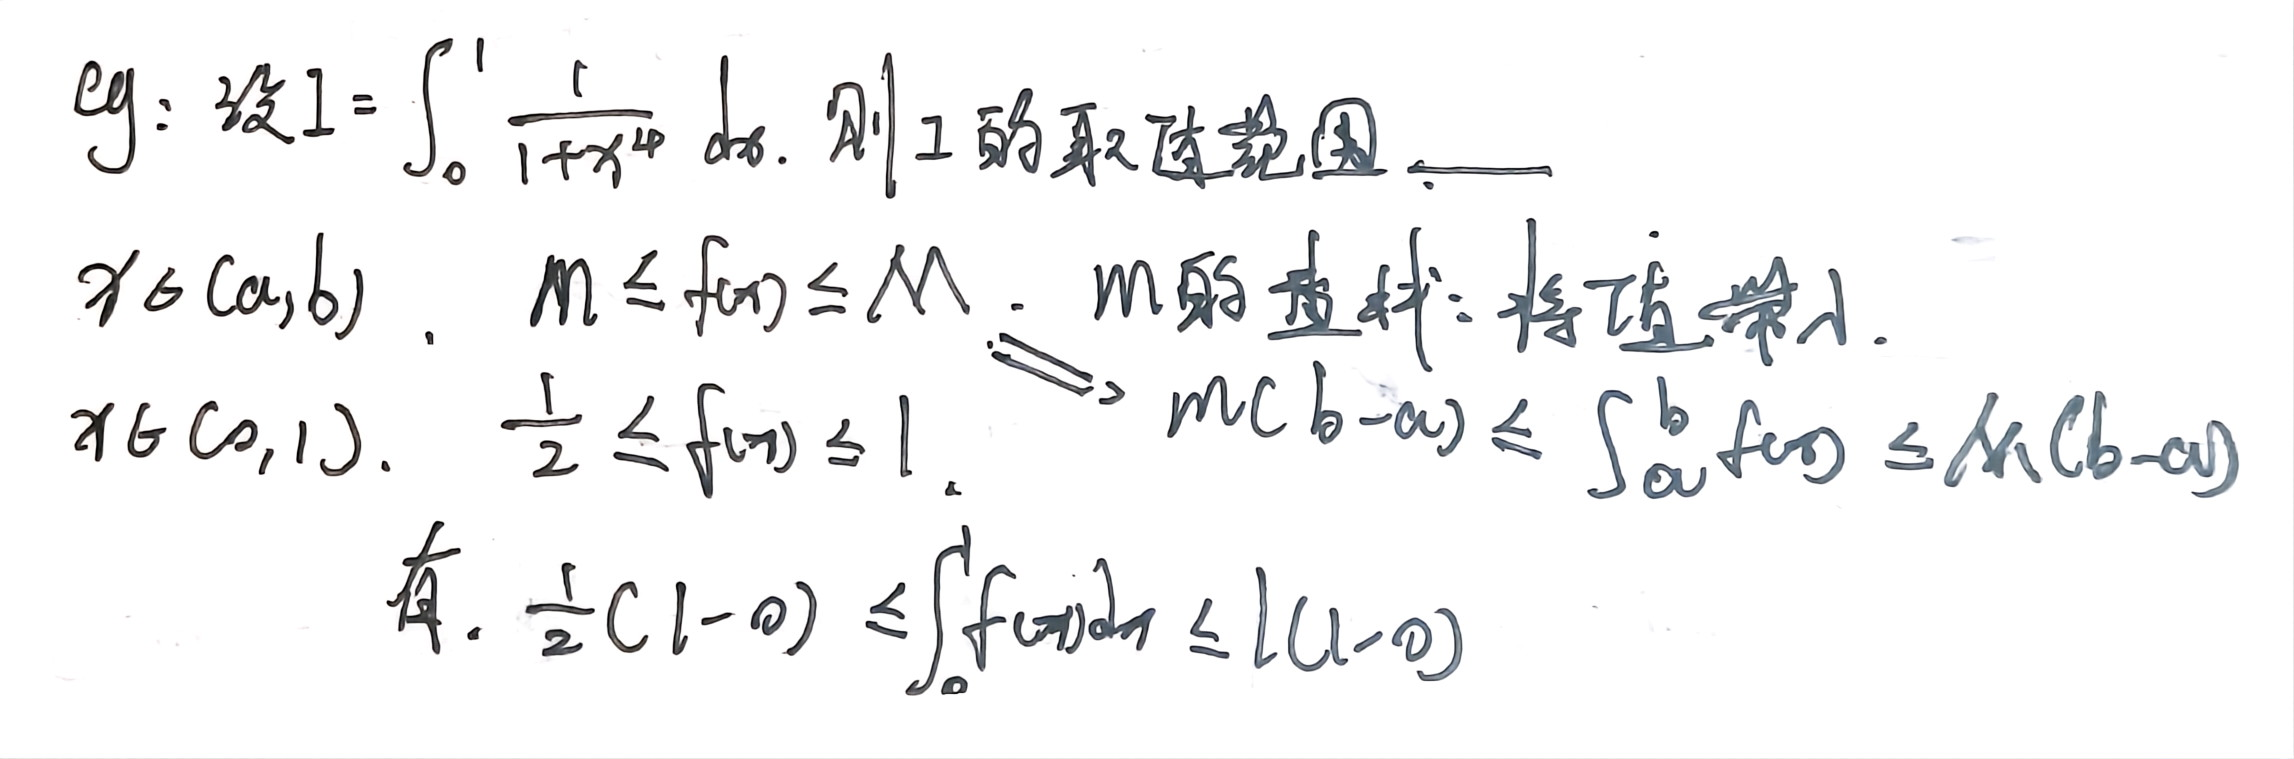 eg: 设I=∫₀¹ 1/(1+x⁴) dx. 则I的取值范围____
x∈(a,b). m≤f(x)≤M. m的查找:将值带入.
x∈(0,1). 1/2≤f(x)≤1. ⟹ m(b-a)≤∫ₐᵇf(x)≤M(b-a)
有. 1/2(1-0)≤∫₀¹f(x)dx≤1(1-0)